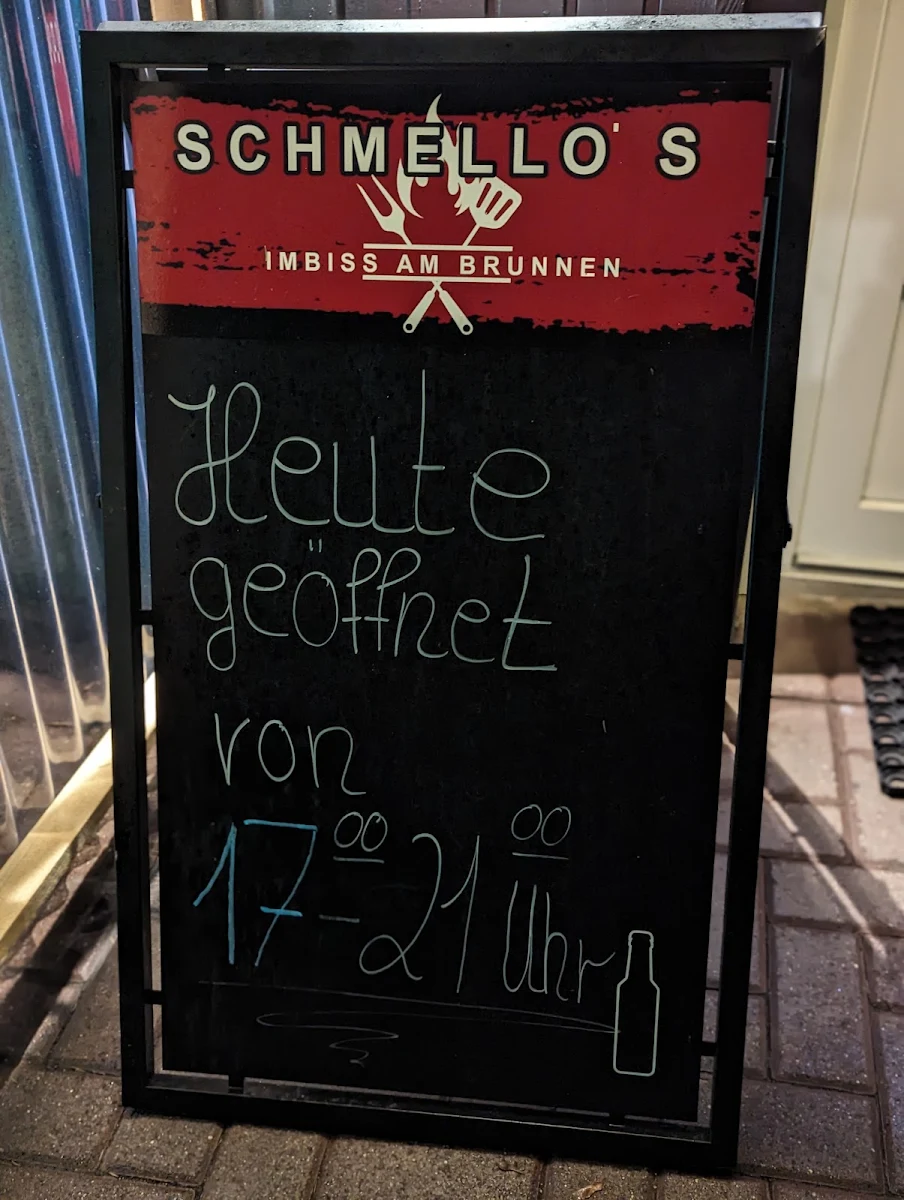 SCHMELLO'S
IMBISS AM BRUNNEN
Heute
geöffnet
von
17⁰⁰ - 21⁰⁰ Uhr